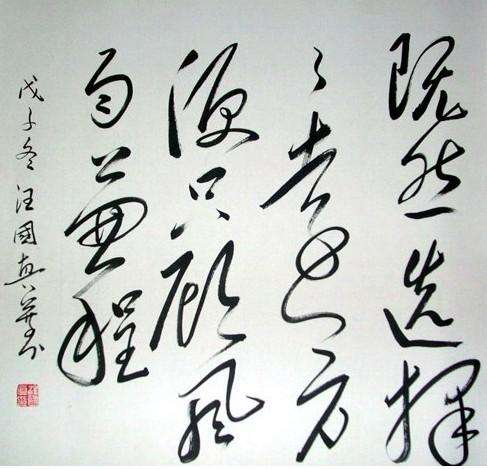 既然选择
了遠方
便只顾风
雨兼程
戊子冬汪國真并书